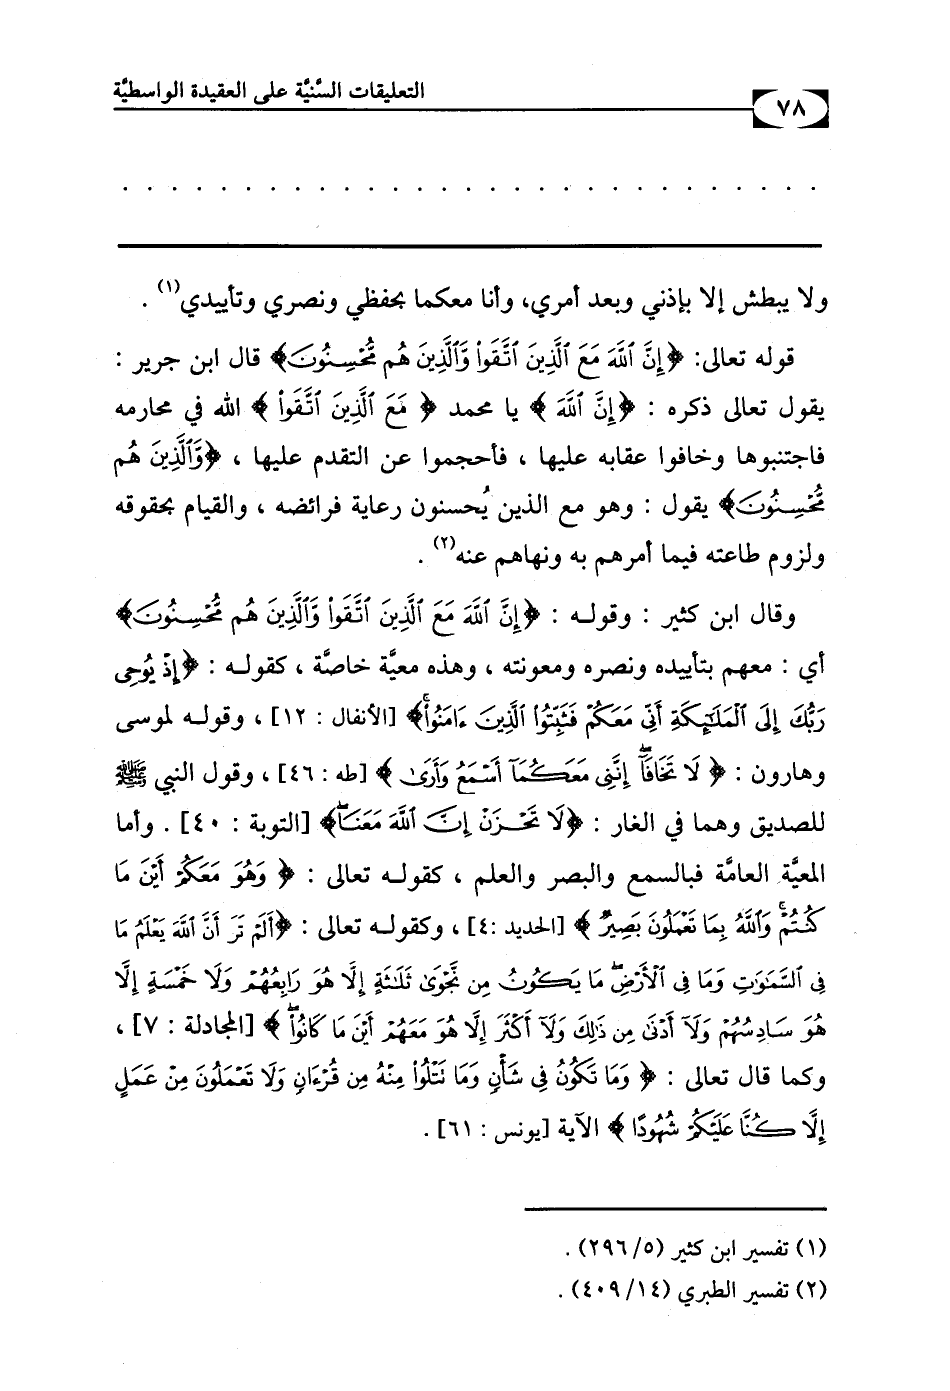 التعليقات السُّنيَّة على العقيدة الواسطيَّة
٧٨
ولا يبطش إلا بإذني وبعد أمري، وأنا معكما بحفظي ونصري وتأييدي(١) .
قوله تعالى: ﴿إِنَّ ٱللَّهَ مَعَ ٱلَّذِينَ ٱتَّقَوا۟ وَّٱلَّذِينَ هُم مُّحْسِنُونَ﴾ قال ابن جرير :
يقول تعالى ذكره : ﴿إِنَّ ٱللَّهَ ﴾ يا محمد ﴿ مَعَ ٱلَّذِينَ ٱتَّقَوا۟ ﴾ الله في محارمه
فاجتنبوها وخافوا عقابه عليها ، فأحجموا عن التقدم عليها ، ﴿وَّٱلَّذِينَ هُم
مُّحْسِنُونَ﴾ يقول : وهو مع الذين يُحسنون رعاية فرائضه ، والقيام بحقوقه
ولزوم طاعته فيما أمرهم به ونهاهم عنه(٢) .
وقال ابن كثير : وقوله : ﴿إِنَّ ٱللَّهَ مَعَ ٱلَّذِينَ ٱتَّقَوا۟ وَّٱلَّذِينَ هُم مُّحْسِنُونَ﴾
أي : معهم بتأييده ونصره ومعونته ، وهذه معيَّة خاصَّة ، كقوله : ﴿إِذْ يُوحِى
رَبُّكَ إِلَى ٱلْمَلَٰٓئِكَةِ أَنِّى مَعَكُمْ فَثَبِّتُوا۟ ٱلَّذِينَ ءَامَنُوا۟ۚ﴾ [الأنفال : ١٢] ، وقوله لموسى
وهارون : ﴿ لَا تَخَافَآۖ إِنَّنِى مَعَكُمَآ أَسْمَعُ وَأَرَىٰ ﴾ [طه : ٤٦] ، وقول النبي ﷺ
للصديق وهما في الغار : ﴿لَا تَحْزَنْ إِنَّ ٱللَّهَ مَعَنَاۖ﴾ [التوبة : ٤٠] . وأما
المعيَّة العامَّة فبالسمع والبصر والعلم ، كقوله تعالى : ﴿ وَهُوَ مَعَكُمْ أَيْنَ مَا
كُنتُمْۚ وَٱللَّهُ بِمَا تَعْمَلُونَ بَصِيرٌ ﴾ [الحديد :٤] ، وكقوله تعالى : ﴿أَلَمْ تَرَ أَنَّ ٱللَّهَ يَعْلَمُ مَا
فِى ٱلسَّمَٰوَٰتِ وَمَا فِى ٱلْأَرْضِۖ مَا يَكُونُ مِن نَّجْوَىٰ ثَلَٰثَةٍ إِلَّا هُوَ رَابِعُهُمْ وَلَا خَمْسَةٍ إِلَّا
هُوَ سَادِسُهُمْ وَلَآ أَدْنَىٰ مِن ذَٰلِكَ وَلَآ أَكْثَرَ إِلَّا هُوَ مَعَهُمْ أَيْنَ مَا كَانُوا۟ۖ ﴾ [المجادلة : ٧] ،
وكما قال تعالى : ﴿ وَمَا تَكُونُ فِى شَأْنٍ وَمَا تَتْلُوا۟ مِنْهُ مِن قُرْءَانٍ وَلَا تَعْمَلُونَ مِنْ عَمَلٍ
إِلَّا كُنَّا عَلَيْكُمْ شُهُودًا ﴾ الآية [يونس : ٦١] .
(١) تفسير ابن كثير (٥/ ٢٩٦) .
(٢) تفسير الطبري (١٤/ ٤٠٩) .